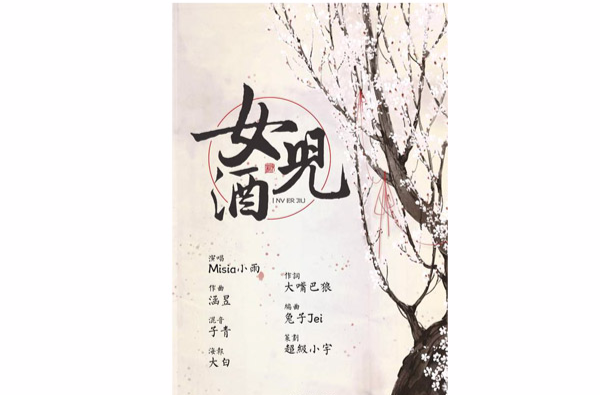 女兒
酒
INVERJIU
演唱
Misia小雨
作曲
涵昱
混音
子青
海報
大白
作詞
大嘴巴狼
編曲
兔子Jei
策劃
超級小宇